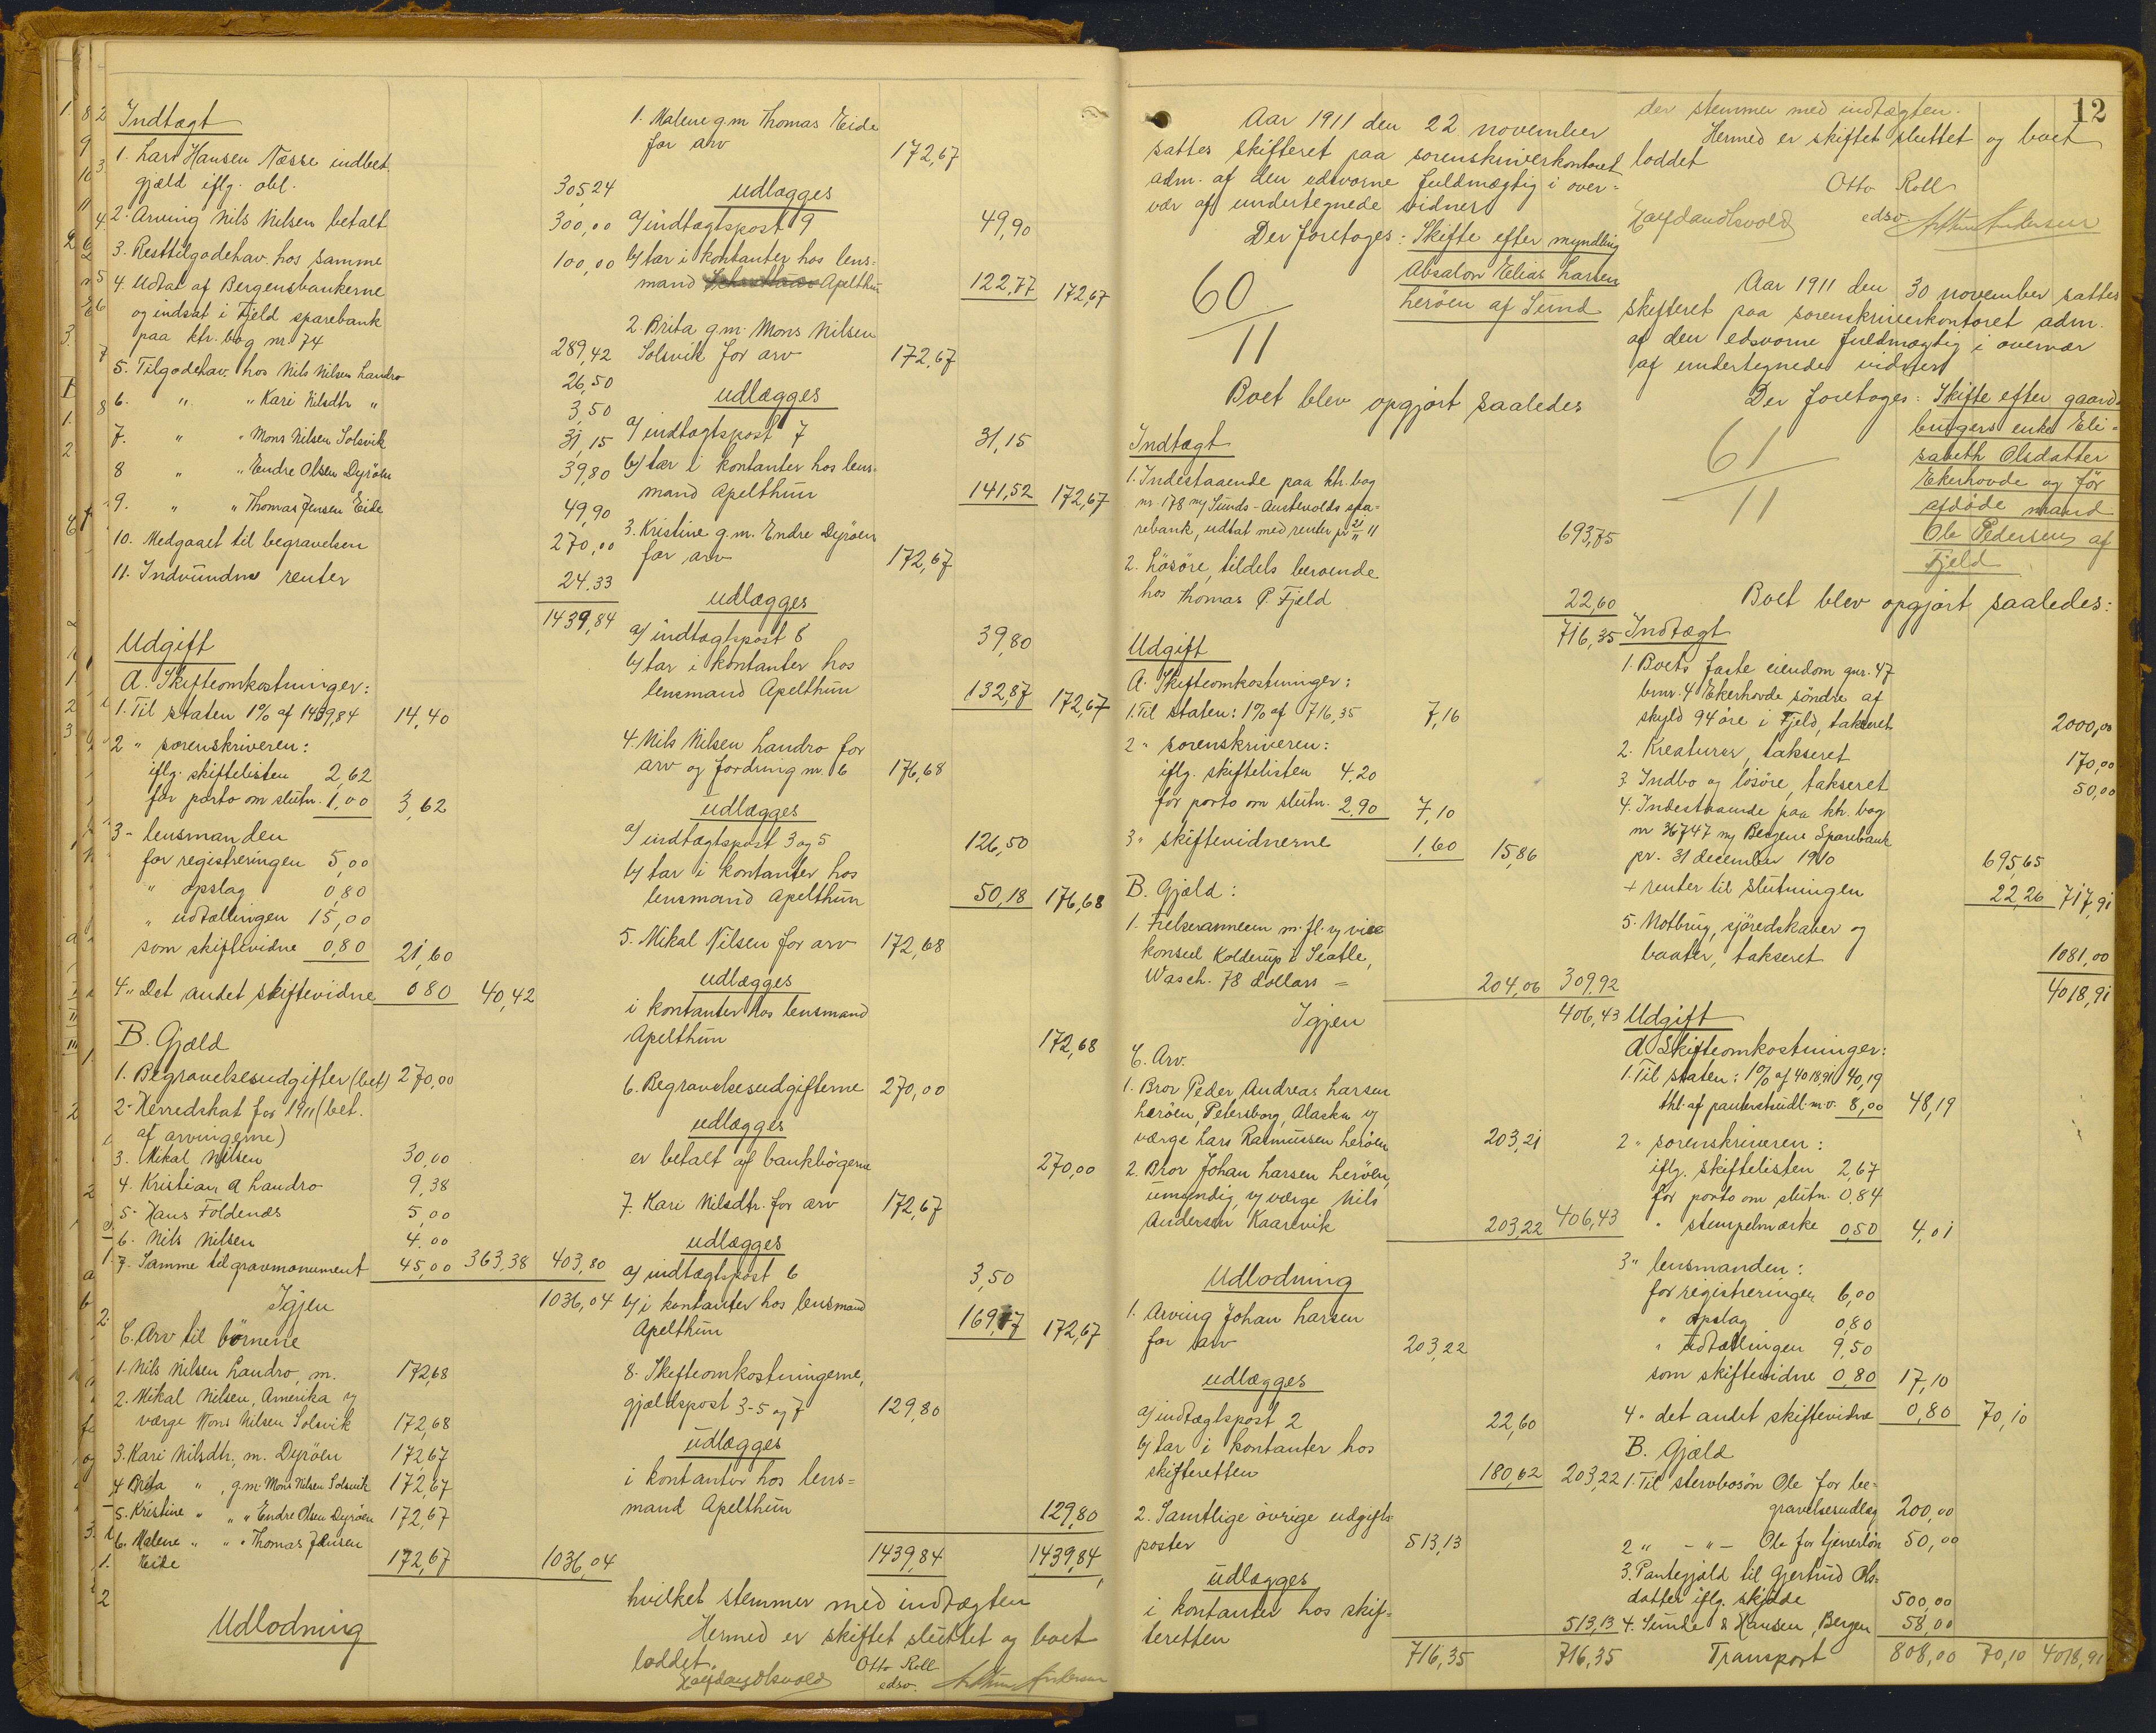 Indtægt
1. Lars Hansen Næsse indbet.
gjæld iflg. obl. 305,24
2. Arving Nils Nilsen betalt 300,00
3. Resttilgodehav. hos samme 100,00
4. Udtat af Bergensbankerne
og indsat i Fjeld sparebank
paa ktr. bog nr. 74 289,42
5. Tilgodehav. hos Nils Nilsen Landro 26,50
6. " " Kari Nilsdtr " 3,50
7. " " Mons Nilsen Solsvik 31,15
8 " " Endre Olsen Dyröen 39,80
9. " " Thomas Jensen Eide 49,90
10. Medgaaet til begravelsen 270,00
11. Indvundne renter 24.33
1439,84
Udgift
A. Skifteomkostninger:
1. Til staten 1% af 1439,84 14,40
2 " sorenskriveren:
iflg. skiftelisten 2,62
for porto om slutn. 1,00 3,62
3 - lensmanden
for registreringen 5,00
" opslag 0,80
" udtællingen 15,00
som skiftevidne 0,80 21,60
4 " Det andet skiftevidne 080 40,42
B. Gjæld
1. Begravelsesudgifter (bet) 270,00
2 - Herredskat for 1911 (bet.
af arvingerne)
3. Mikal Nilsen 30,00
4. Kristian A Landro 9,38
5 - Hans Foldenæs 5,00
6. Nils Nilsen 4.00
7. Samme til gravmonument 45,00 363,38 403,80
Igjen 1036,04
C. Arv til börnene
1. Nils Nilsen Landro, m. 172,68
2. Mikal Nilsen, Amerika v/
værge Mons Nilsen Solsvik 172,68
3. Kari Nilsdtr, m. Dyröen 172,67
4 Brita " , g.m. Mons Nilsen Solsvik 172,67
5. Kristine " " " Endre Olsen Dyröen 172,67
6. Malene " " " Thomas Jensen
Eide 172,67 1036,04
Udlodning
1. Malene g.m Thomas Eide
for arv 172,67
udlægges
a/ indtægtspost 9 49,90
b/ tar i kontanter hos lens=
mand Apelthun 122,77 172,67
2. Brita g.m. Mons Nilsen
Solsvik for arv 172,67
udlægges
a/ indtægtspost 7 31,15
b/ tar i kontanter hos lens-
mand Apelthun 141,52 172,67
3. Kristine g.m. Endre Dyröen
for arv 172,67
udlægges
a/ indtægtspost 8 39,80
b/ tar i kontanter hos
lensmand Apelthun 132,87 172,67
4. Nils Nilsen Landro for
arv og fordring nr. 6 176,68
udlægges
a/ indtægtspost 3 og 5 126,50
b/ tar i kontanter hos
lensmand Apelthun 50,18 176,68
5. Mikal Nilsen for arv 172,68
udlægges
i kontanter hos lensmand
Apelthun 172,68
6. Begravelsesudgifterne 270,00
udlægges
er betalt af bankbögerne 270,00
7. Kari Nilsdtr. for arv 172,67
udlægges
a/ indtægtspost 6 3,50
b/ i kontanter hos lensmand
Apelthun 169,17 172,67
8. Skifteomkostningerne,
gjældspost 3-5 og 7 129,80
udlægges
i kontanter hos lens=
mand Apelthun 129,80
1439,84 1439,84
hvilket stemmer med indtægten
Hermed er skiftet sluttet og boet
loddet.
Otto Roll
edsv.
Arthur Andersen
Aar 1911 den 22 november
sattes skifteret paa sorenskriverkontoret
adm. af den edsvorne fuldmægtig i over=
vær af undertegnede vidner
Der foretoges: Skifte efter myndling
Absalon Elias Larsen
Leröen af Sund
60
11
Boet blev opgjört saaledes
Indtægt
1. Indestaaende paa ktr. bog
nr. 178 m/ Sunds-Austevolds spa=
rebank, udtat med renter pr 21/11 11 693,75
2. Lösöre, tildels beroende
hos Thomas P. Fjeld 22,60
716,35
Udgift
A. Skifteomkostninger:
1. Til staten: 1% af 716,35 7,16
2 " sorenskriveren:
iflg. skiftelisten 4,20
for porto om slutn. 2,90 7,10
3 " skiftevidnerne 1,60 15,86
B. Gjæld:
1. Frelserarmeen m. fl. v/ vice
konsul Kolderup i Seatle,
Wasch. 78 dollars = 204,06 309,92
Igjen 406,43
C. Arv.
1. Bror Peder Andreas Larsen
Leröen, Petersborg, Alaska v/
værge Lars Rasmussen Leröen 203,21
2. Bror Johan Larsen Leröen,
umyndig, v/ værge Nils
Andersen Kaarevik 203,22 406,43
Udlodning
1. Arving Johan Larsen
for arv 203,22
udlægges
a/ indtægtspost 2 22,60
b/ tar i kontanter hos
skifteretten 180,62 203,22
2. Samtlige övrige udgifts=
poster 513,13
udlægges
i kontanter hos skif=
teretten 513,13
716,35 716,35
12
der stemmer med indtægten.
Hermed er skiftet sluttet og boet
loddet
Otto Roll
edsv
Arthur Andersen
Aar 1911 den 30 november sattes
skifteret paa sorenskriverkontoret adm.
af den edsvorne fuldmægtig i overvær
af undertegnede vidner
Der foretoges: Skifte efter gaard=
brugers enke Eli=
sabeth Olsdatter
Ekerhovde og för
afdöde mand
Ole Pedersen af
Fjeld
61
11
Boet blev opgjört saaledes:
Indtægt
1. Boets faste eiendom gnr. 47
brnr. 4 Ekerhovde söndre af
skyld 94 öre i Fjeld, takseret 2000,00
2. Kreaturer, takseret 170,00
3. Indbo og lösöre, takseret 50,00
4. Indestaaende paa ktr. bog
nr 36747 m/ Bergens Sparebank
pr. 31 december 1910 695,65
+ renter til slutningen 22,26 717,91
5. Notbrug, sjöredskaber og
baater, takseret 1081,00
4018,91
Udgift
A. Skifteomkostninger:
1. Til staten: 1% af 4018,91 40,19
thl. af panterstudl. m.v. 8,00 48,19
2 " sorenskriveren:
iflg. skiftelisten 2,67
for porto om slutn. 0,84
" stempelmærke 0,50 4,01
3 " lensmanden:
for registreringen 6,00
" opslag 0,80
" udtællingen 9,50
som skiftevidne 0,80 17,10
4 " det andet skiftevidne 0,80 70,10
B. Gjæld
1. Til stervbosön Ole for be=
gravelsesudlæg 200,00
2 " - " - Ole for tjenerlön 50,00
3. Pantegjæld til Gjertrud Ols=
datter iflg. skjöde 500,00
4. Sunde & Hansen, Bergen 58,00
Transport 808,00 70,10 4018,91